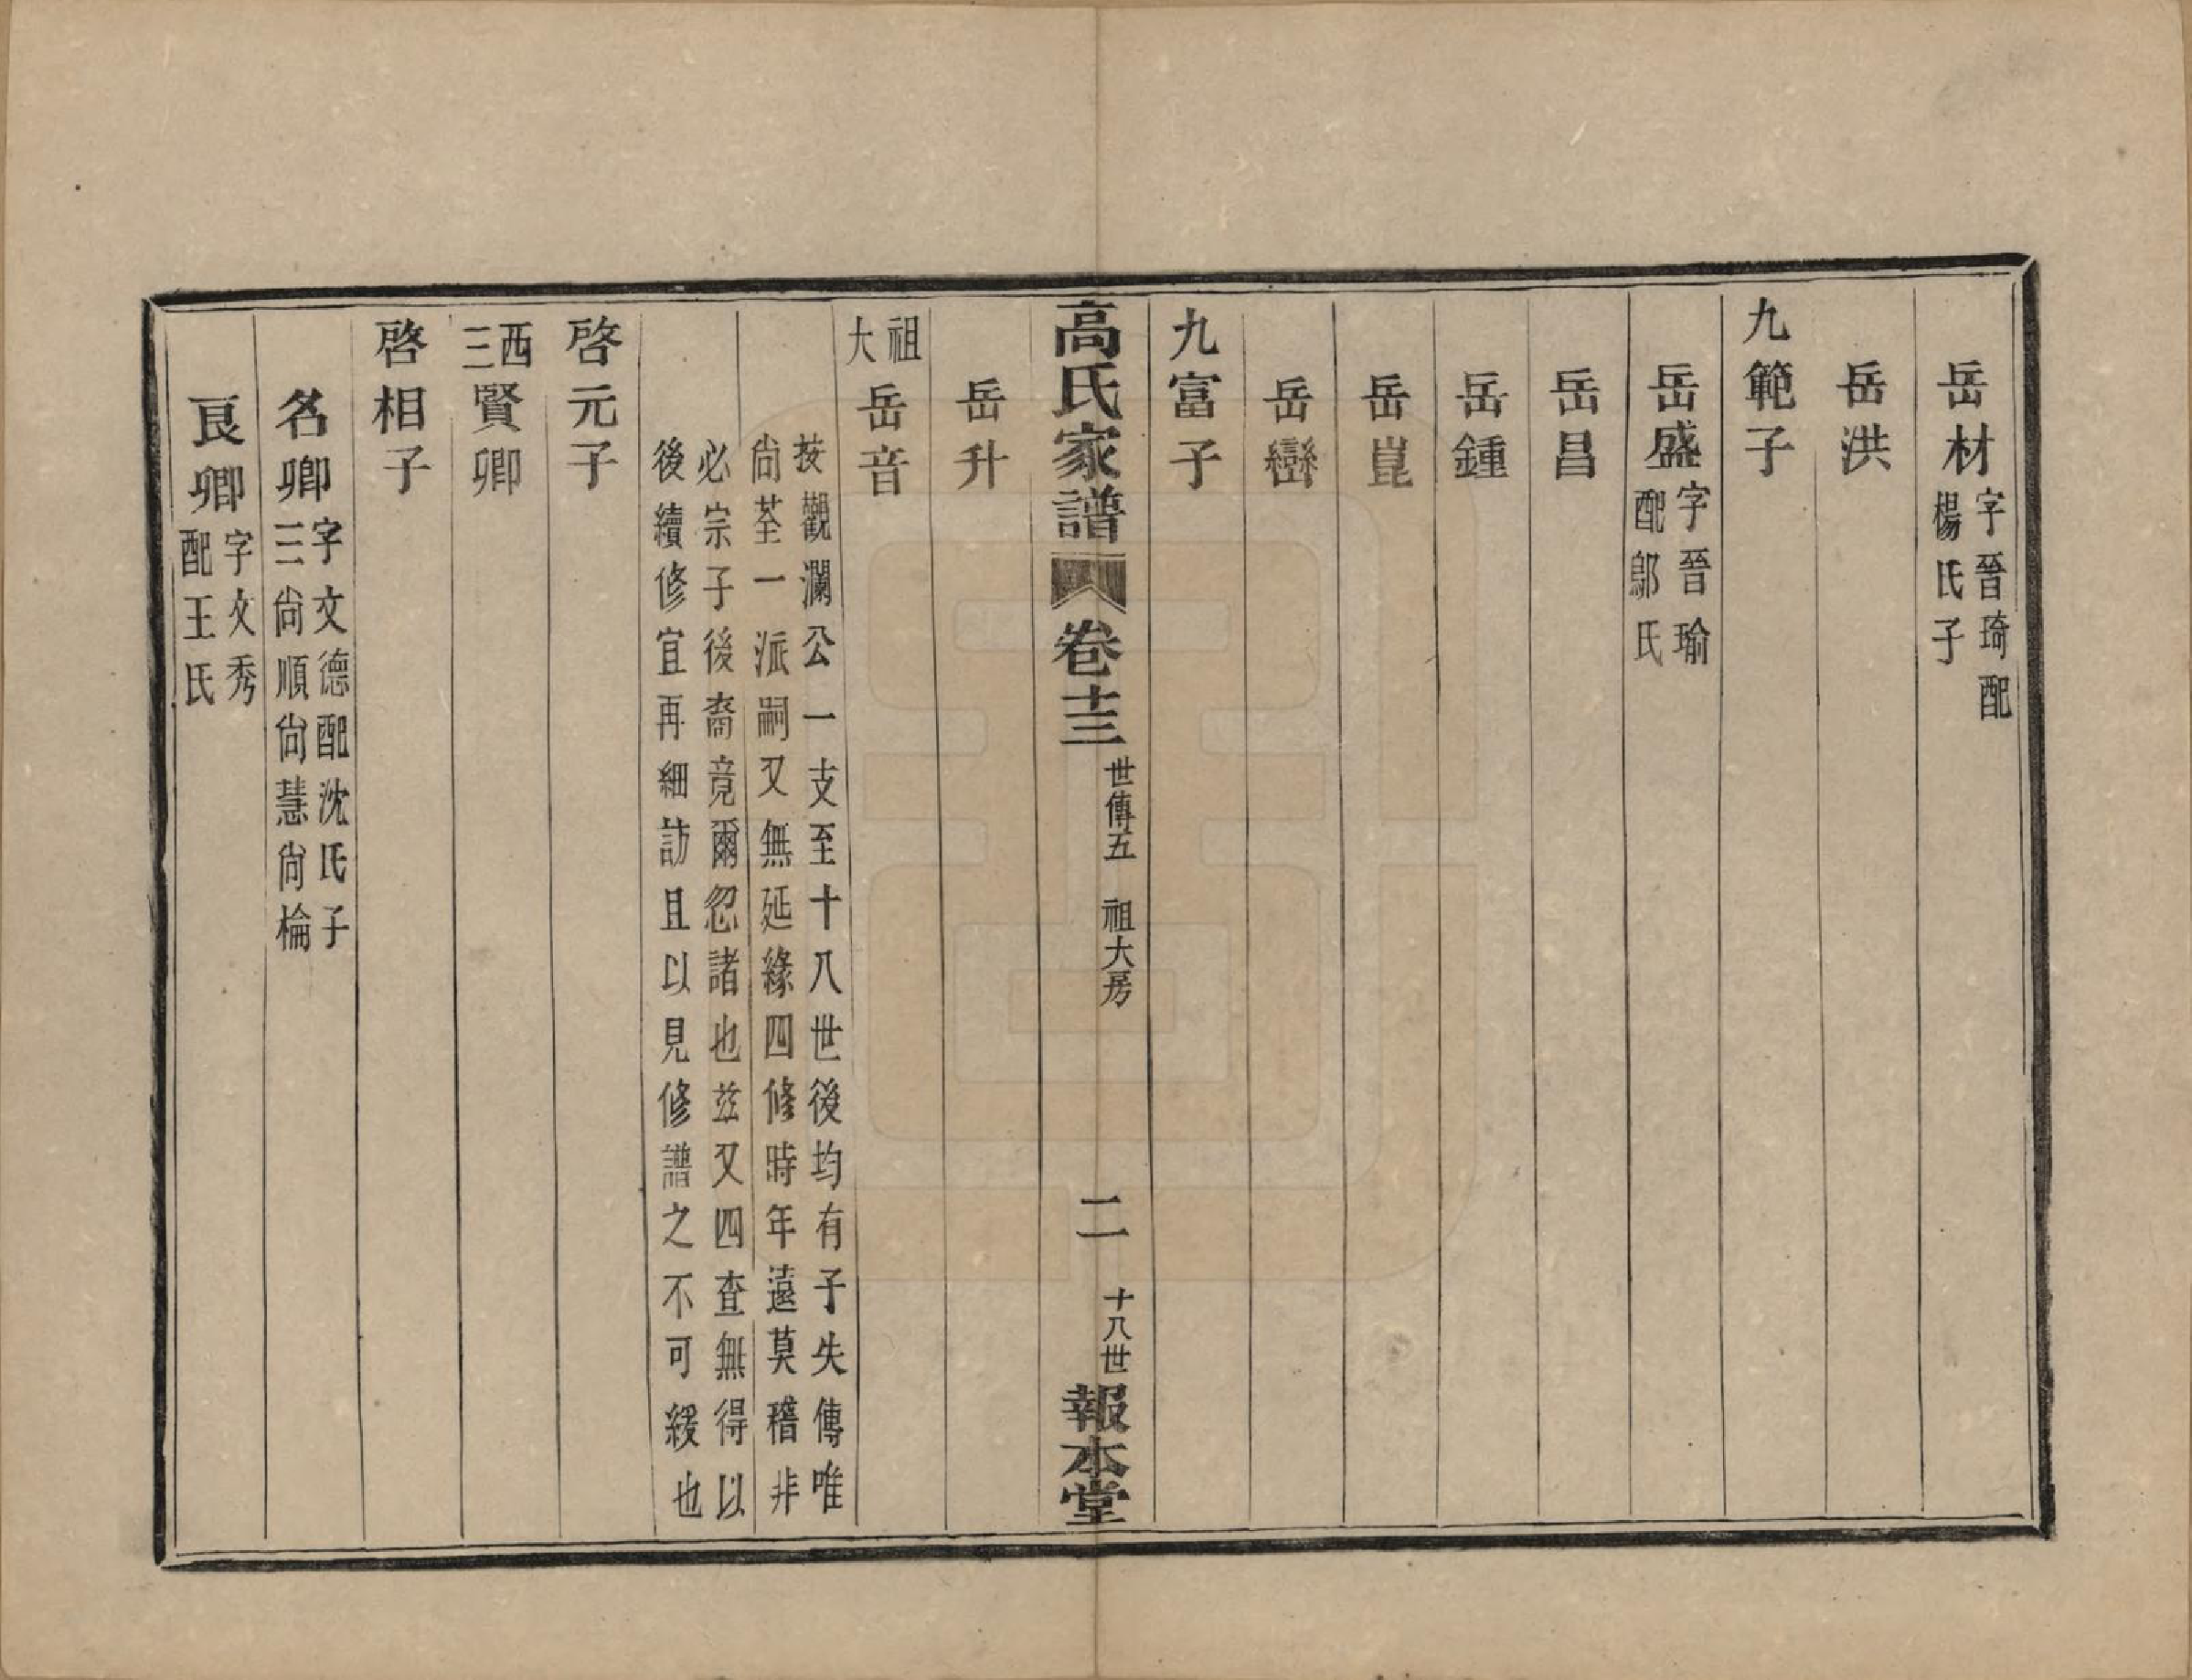 岳材 字晉琦配
楊氏子
岳洪
九範子
岳盛 字晉瑜
配鄔氏
岳昌
岳鍾
岳崑
岳巒
九富子
高氏家譜 卷十三 世傳五 祖大房 二 十八世 報本堂
岳升
祖大 岳音
按觀瀾公一支至十八世後均有子失傳唯
尙荃一派嗣又無延緣四修時年遠莫稽非
必宗子後裔竟爾忽諸也茲又四查無得以
後續修宜再細訪且以見修譜之不可緩也
啓元子
西三 賢卿
啓相子
名卿 字文德配沈氏子
三尙順尙慧尙棆
良卿 字文秀
配王氏